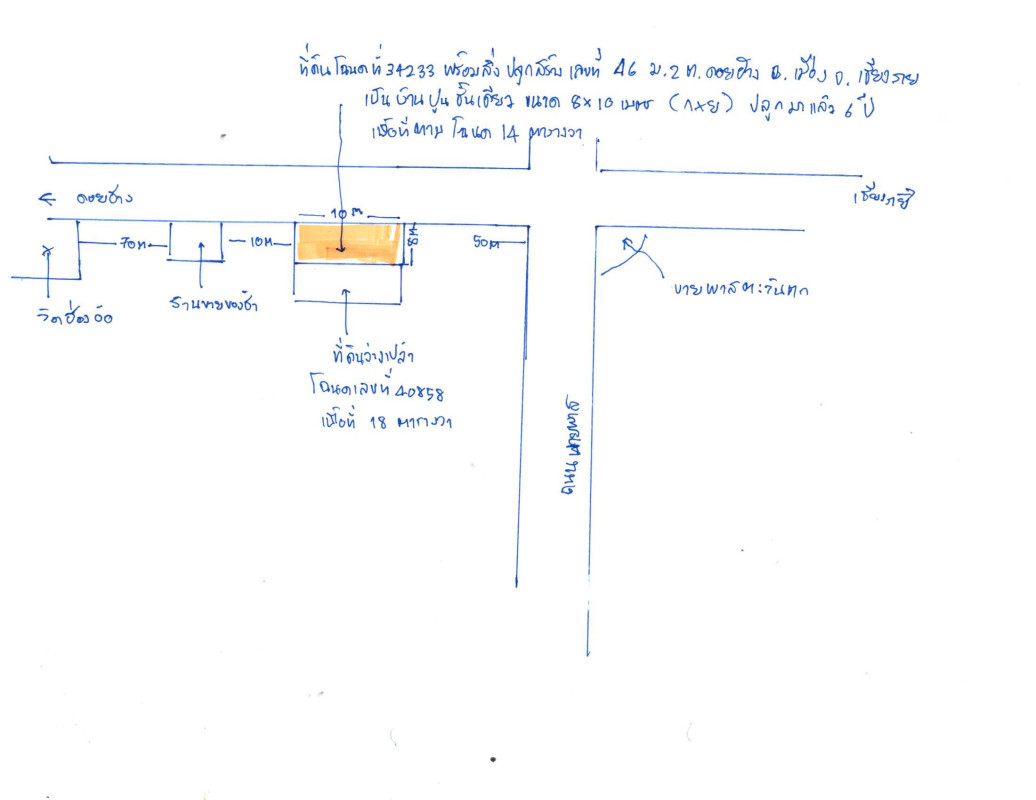 ที่ดินโฉนดที่ 34233 พร้อมสิ่งปลูกสร้าง เลขที่ 46 ม.2 ต.ดอยฮ้าง อ.เมือง จ.เชียงราย
เป็นบ้านปูนชั้นเดียว ขนาด 8×10 เมตร (กxย) ปลูกมาแล้ว 6 ปี
เนื้อที่ตามโฉนด 14 ตารางวา
← ดอยฮ้าง
เชียงราย
10 m
8 M
70 m
10 M
50 M
ร้านขายของชำ
บายพาสตะวันตก
ที่ดินว่างเปล่า
โฉนดเลขที่ 40858
เนื้อที่ 18 ตารางวา
ถนนบายพาส